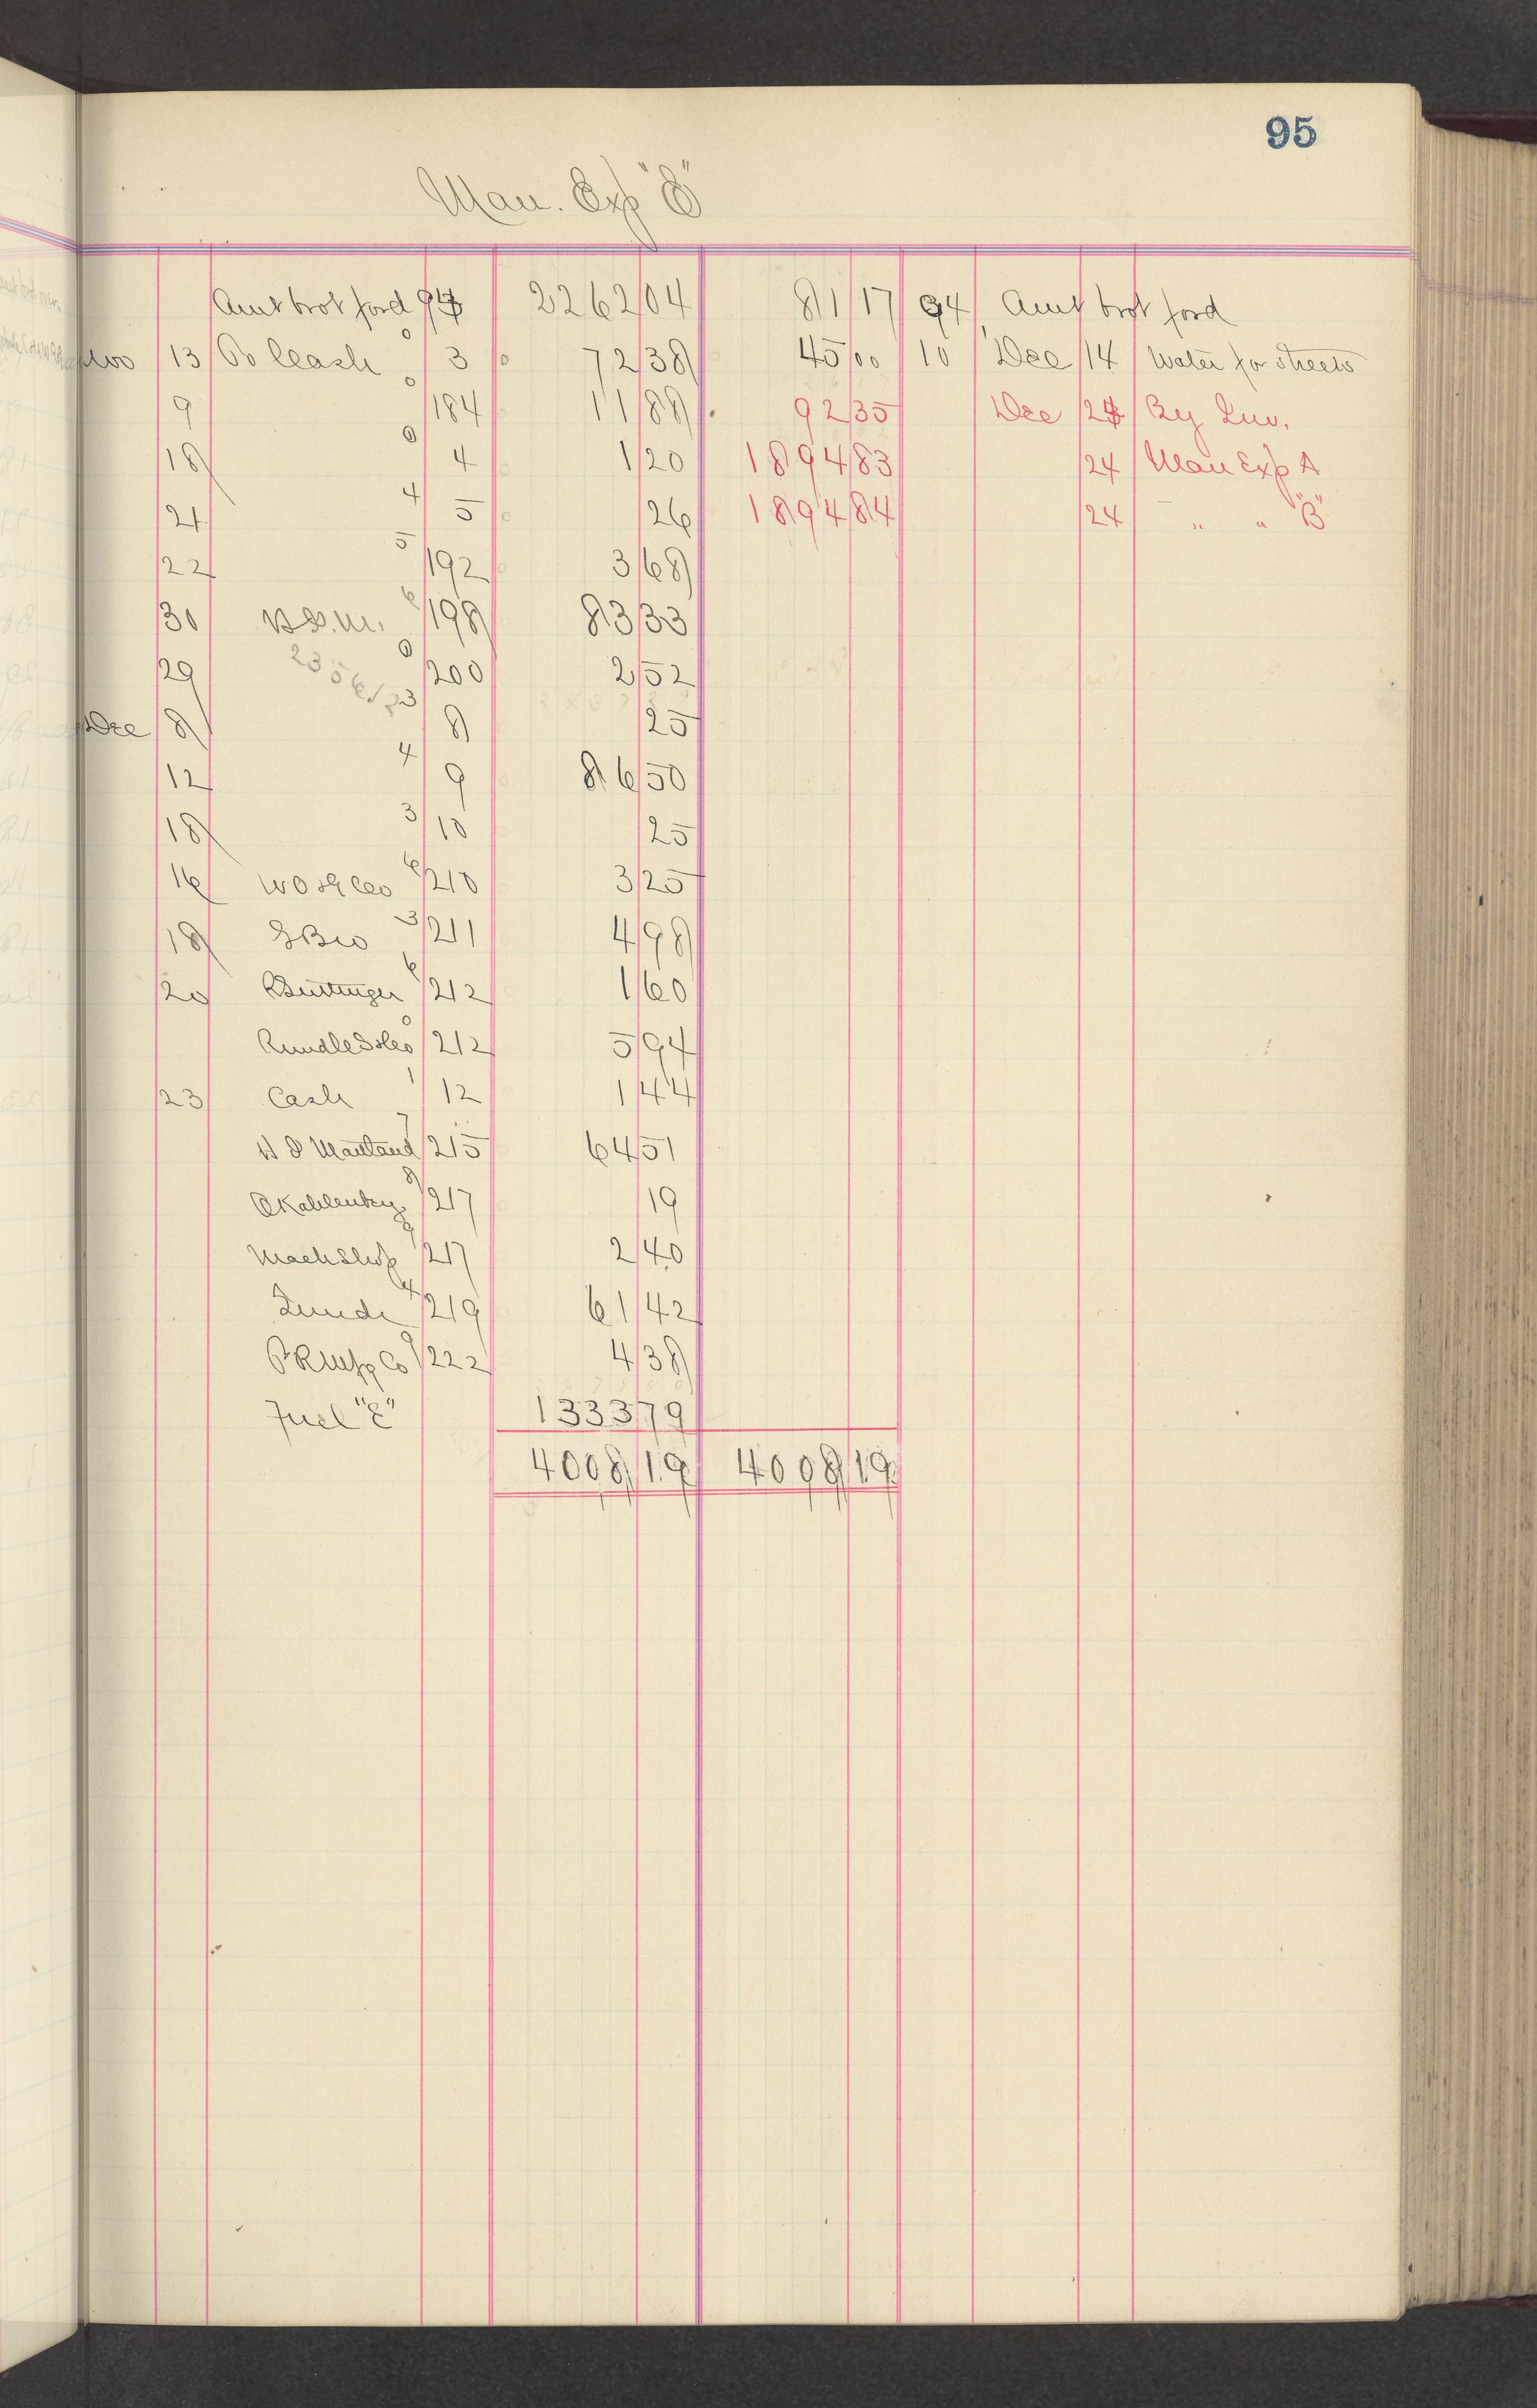 95
Man. Exp "E"
Amt brot ford 94 2262 04 81 17 94 Amt brot ford
Nov 13 To Cash 3 72 38 45 00 10 Dec 14 Water for streets
9 184 11 88 92 35 Dec 24 By Inv.
18 4 1 20 1894 83 24 Man Exp A
21 5 26 1894 84 24 " " "B"
22 192 3 68
30 198 83 33
29 200 2 52
Dec 8 8 25
12 9 86 50
18 10 25
16 210 3 25
18 211 4 98
20 212 1 60
212 5 94
23 Cash 12 1 44
215 64 51
217 19
Mach Shop 217 2 40
219 61 42
222 4 38
Fuel "E" 1333 79
4008 19 4008 19